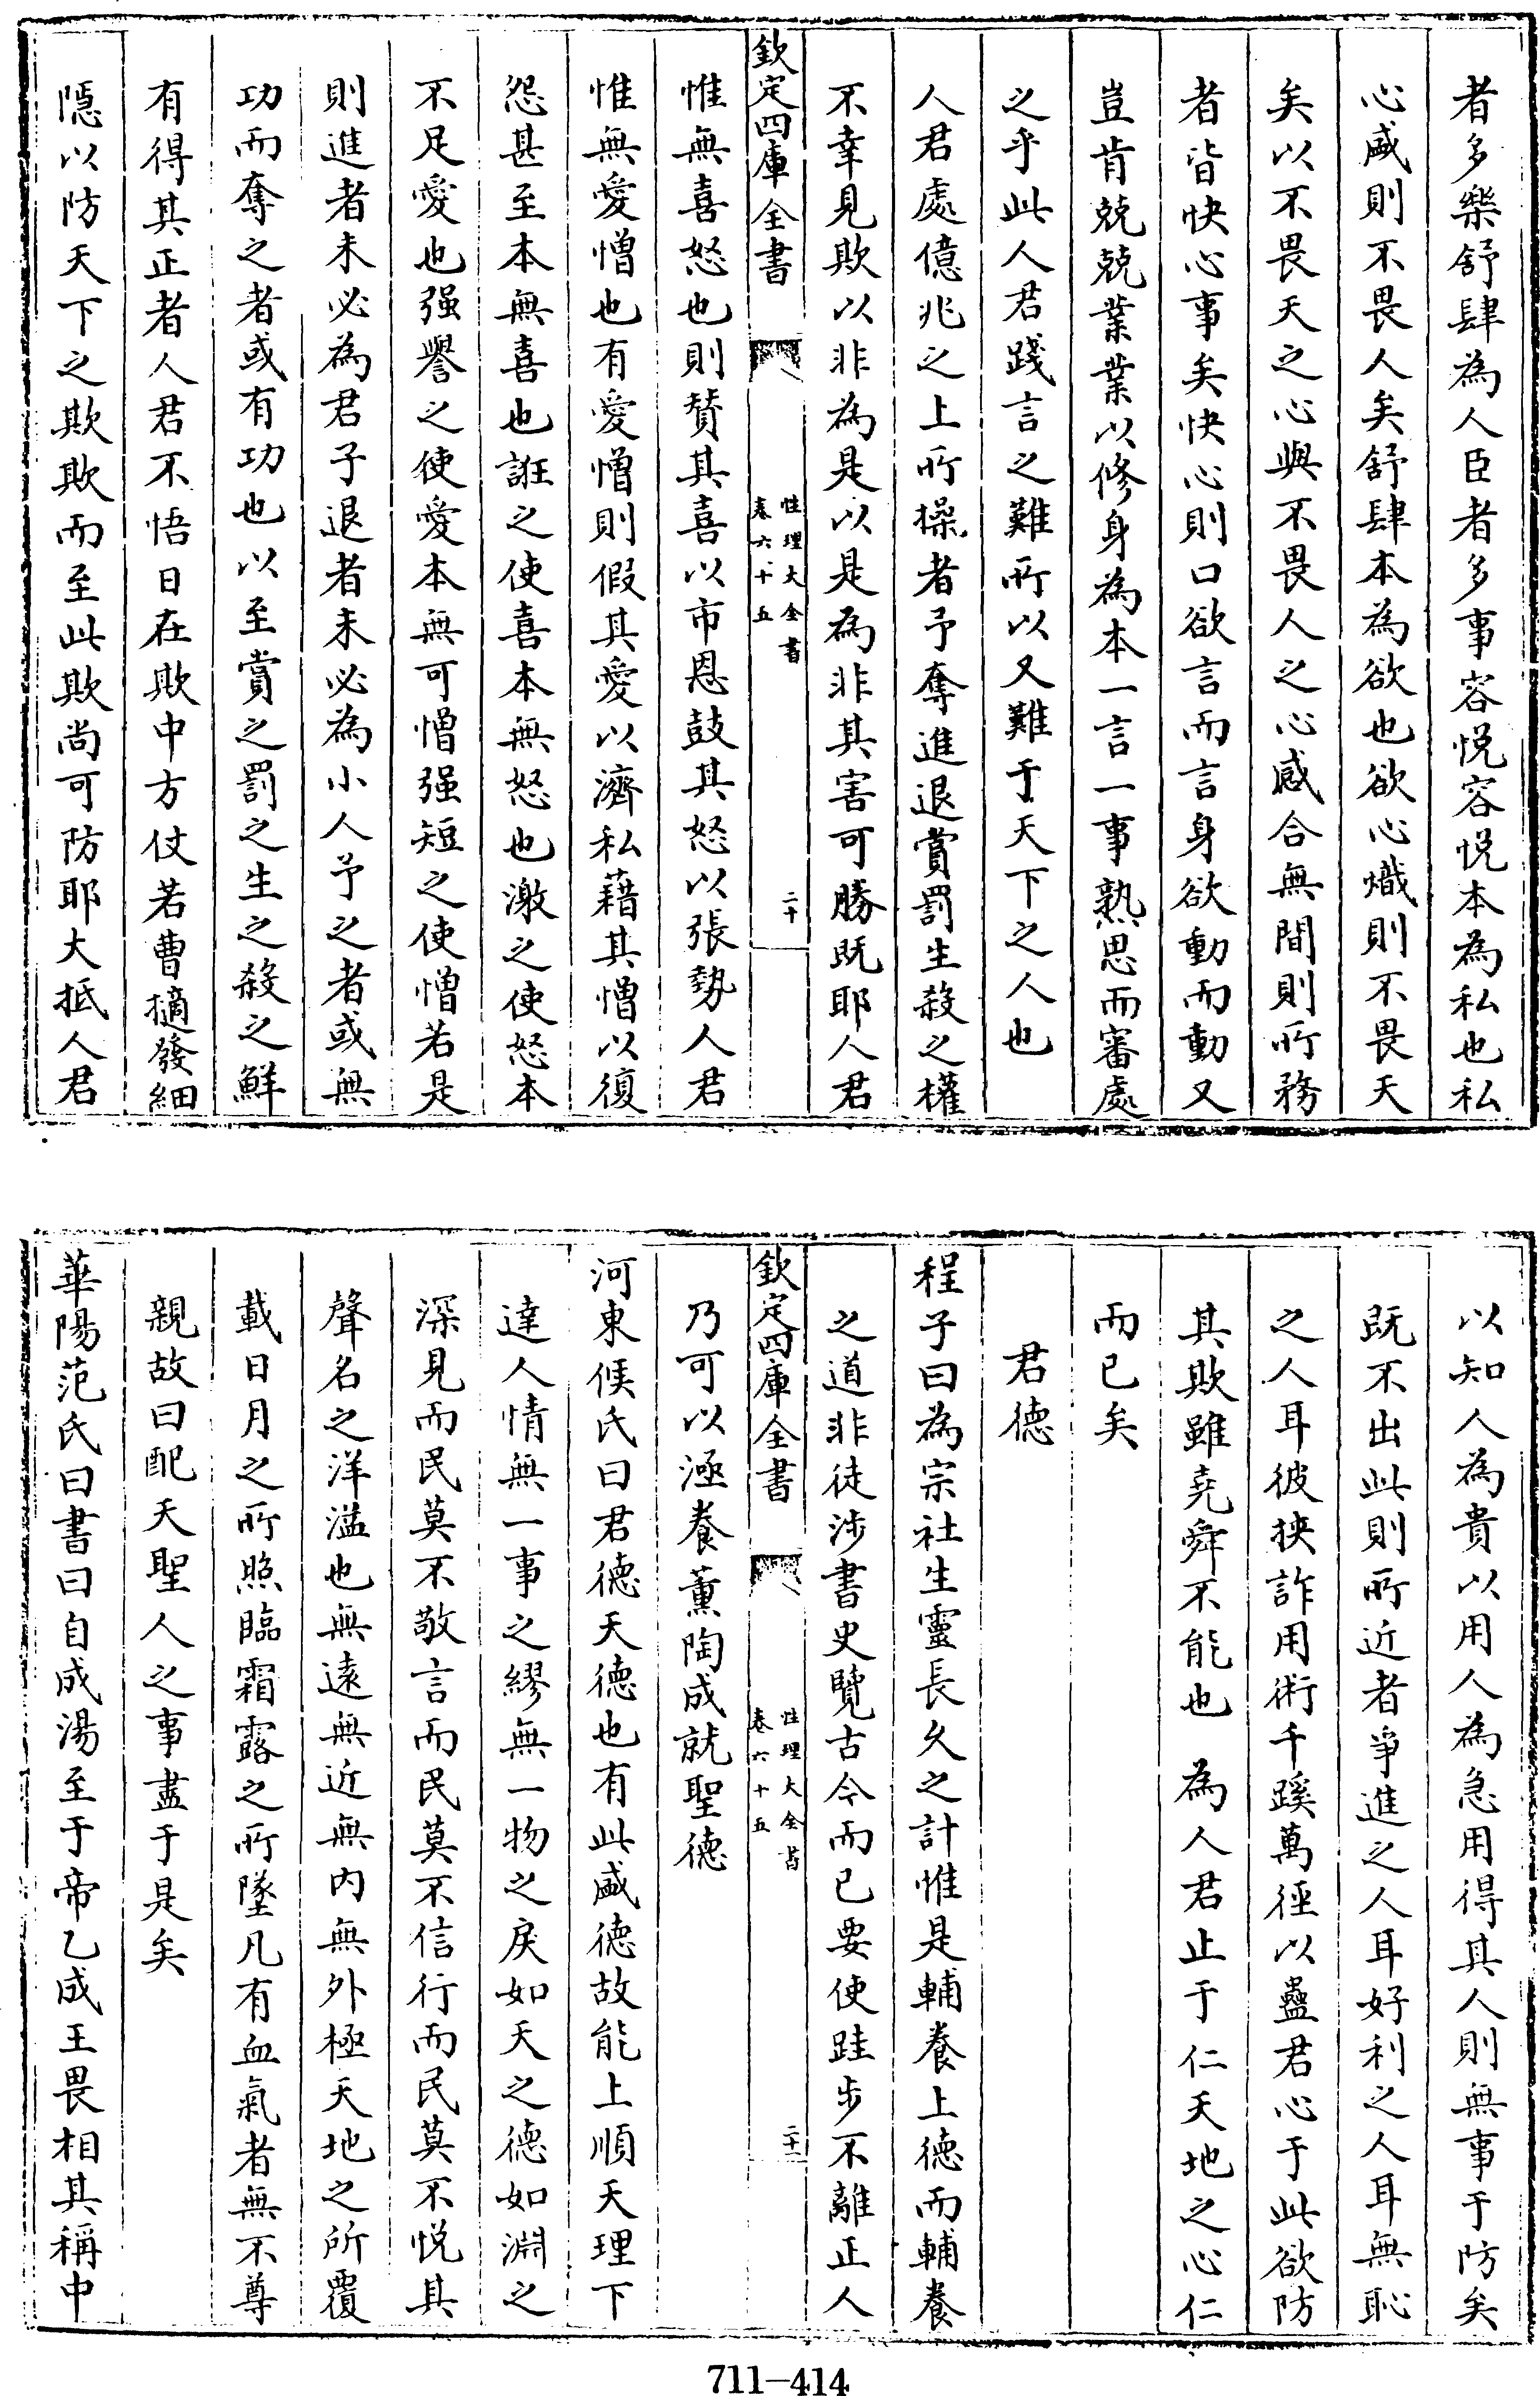 者多樂舒肆為人臣者多事容悅容悅本為私也私
心盛則不畏人矣舒肆本為欲也欲心熾則不畏天
矣以不畏天之心與不畏人之心感合無間則所務
者皆快心事矣快心則口欲言而言身欲動而動又
豈肯兢兢業業以修身為本一言一事熟思而審處
之乎此人君踐言之難所以又難于天下之人也
人君處億兆之上所操者予奪進退賞罰生殺之權
不幸見欺以非為是以是為非其害可勝既耶人君
欽定四庫全書
性理大全書
卷六十五
二十
惟無喜怒也則贊其喜以市恩鼓其怒以張勢人君
惟無愛憎也有愛憎則假其愛以濟私藉其憎以復
怨甚至本無喜也誑之使喜本無怒也激之使怒本
不足愛也强譽之使愛本無可憎强短之使憎若是
則進者未必為君子退者未必為小人予之者或無
功而奪之者或有功也以至賞之罰之生之殺之鮮
有得其正者人君不悟日在欺中方仗若曹擿發細
隱以防天下之欺欺而至此欺尚可防耶大抵人君
以知人為貴以用人為急用得其人則無事于防矣
既不出此則所近者爭進之人耳好利之人耳無恥
之人耳彼挾詐用術千蹊萬徑以蠱君心于此欲防
其欺雖堯舜不能也 為人君止于仁天地之心仁
而已矣
君德
程子曰為宗社生靈長久之計惟是輔養上德而輔養
之道非徒涉書史覽古今而已要使跬步不離正人
欽定四庫全書
性理大全書
卷六十五
二十一
乃可以涵養薰陶成就聖德
河東侯氏曰君德天德也有此盛德故能上順天理下
達人情無一事之繆無一物之戾如天之德如淵之
深見而民莫不敬言而民莫不信行而民莫不悅其
聲名之洋溢也無遠無近無內無外極天地之所覆
載日月之所照臨霜露之所墜凡有血氣者無不尊
親故曰配天聖人之事盡于是矣
華陽范氏曰書曰自成湯至于帝乙成王畏相其稱中
711-414